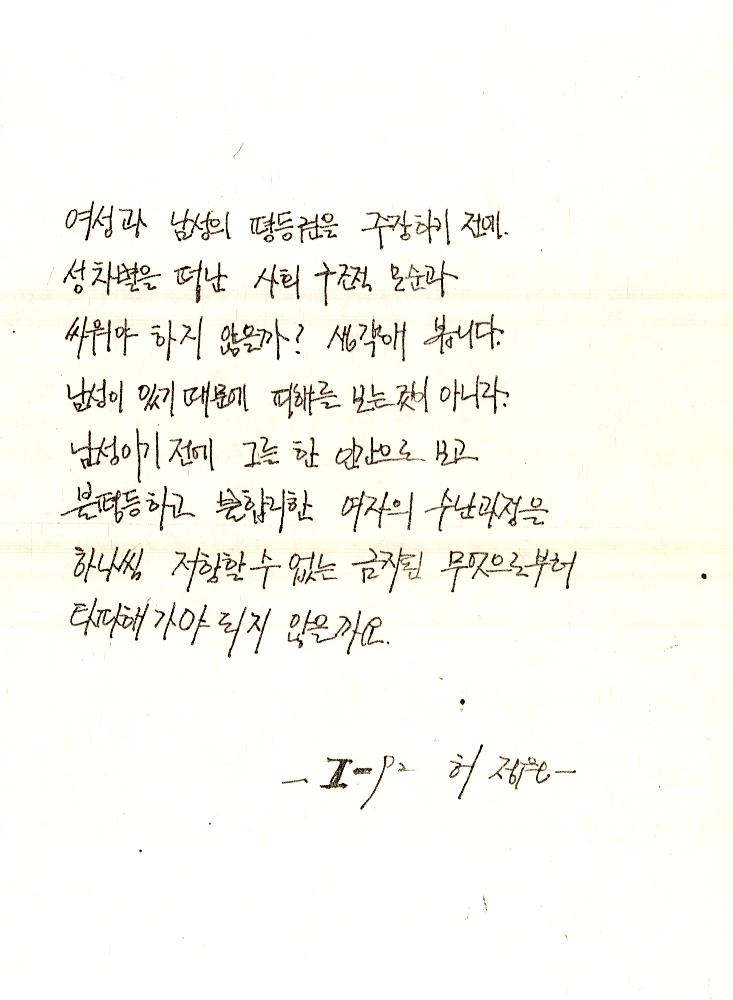 여성과 남성의 평등권을 주장하기 전에.
성차별을 떠난 사회 구조적 모순과
싸워야 하지 않을까? 생각해 봅니다.
남성이 있기 때문에 피해를 보는 것이 아니라.
남성이기 전에 그를 한 인간으로 보고
불평등하고 불합리한 여자의 수난과정을
하나씩 저항할 수 없는 금지된 무엇으로부터
타파해 가야 되지 않을까요.
허